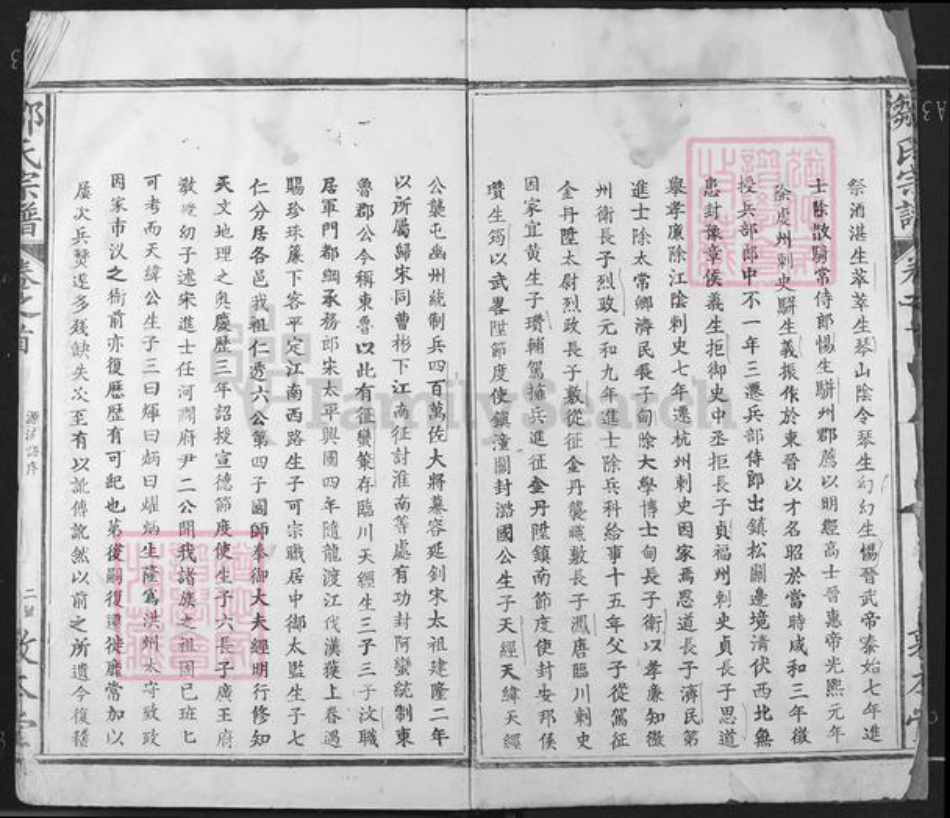 鄒氏宗譜
卷之首
敦本堂
祭酒湛生萃萃生琴山陰令琴生幻幻生惕晉武帝泰始七年進
士除散騎常侍郎惕生駢州郡薦以明經高士晉惠帝光熙元年
除虔州刺史駢生義振作於東晉以才名昭於當時咸和三年徵
授兵部郎中不一年三遷兵部侍郎出鎮松關邊境清伏西北無
患封豫章侯義生拒御史中丞拒長子貞福州刺史貞長子思道
舉孝廉除江陰刺史七年遷杭州刺史因家焉思道長子濟民第
進士除太常卿濟民長子甸除大學博士甸長子衛以孝廉知徽
州衛長子烈政元和九年進士除兵科給事十五年父子從駕征
金丹陞太尉烈政長子敷從征金丹襲職敷長子澠唐臨川刺史
因家宜黃生子瓚輔駕擁兵進征金丹陞鎮南節度使封安邦侯
瓚生筠以武畧陞節度使鎮潼關封潞國公生子天經天緯天經
公襲屯幽州統制兵四百萬佐大將慕容延釗宋太祖建隆二年
以所屬歸宋同曹彬下江南征討淮南等處有功封阿蠻統制東
魯郡公今稱東魯以此有征蠻策存臨川天經生三子三子汶職
居軍門都綱承務郎宋太平興國四年隨龍渡江伐漢獲上眷遇
賜珍珠簾下客平定江南西路生子可宗職居中御太監生子七
仁分居各邑我祖仁透六公第四子國師奉御大夫經明行修知
天文地理之奧慶歷三年詔授宣德節度使生子六長子廣王府
教授幼子逵宋進士任河澗府尹二公開我諸族之祖固已班匕
可考而天緯公生子三曰輝曰炳曰耀炳生隆為洪州太守致政
因家市汊之衙前亦復歷歷有可紀也第後嗣復遷徙靡當加以
屢次兵燹遂多殘缺失次至有以訛傳訛然以前之所遺今復稽
源流譜序
二
鄒氏宗譜
卷之首
敦本堂